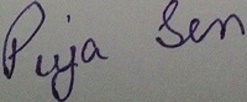 Puja Sen